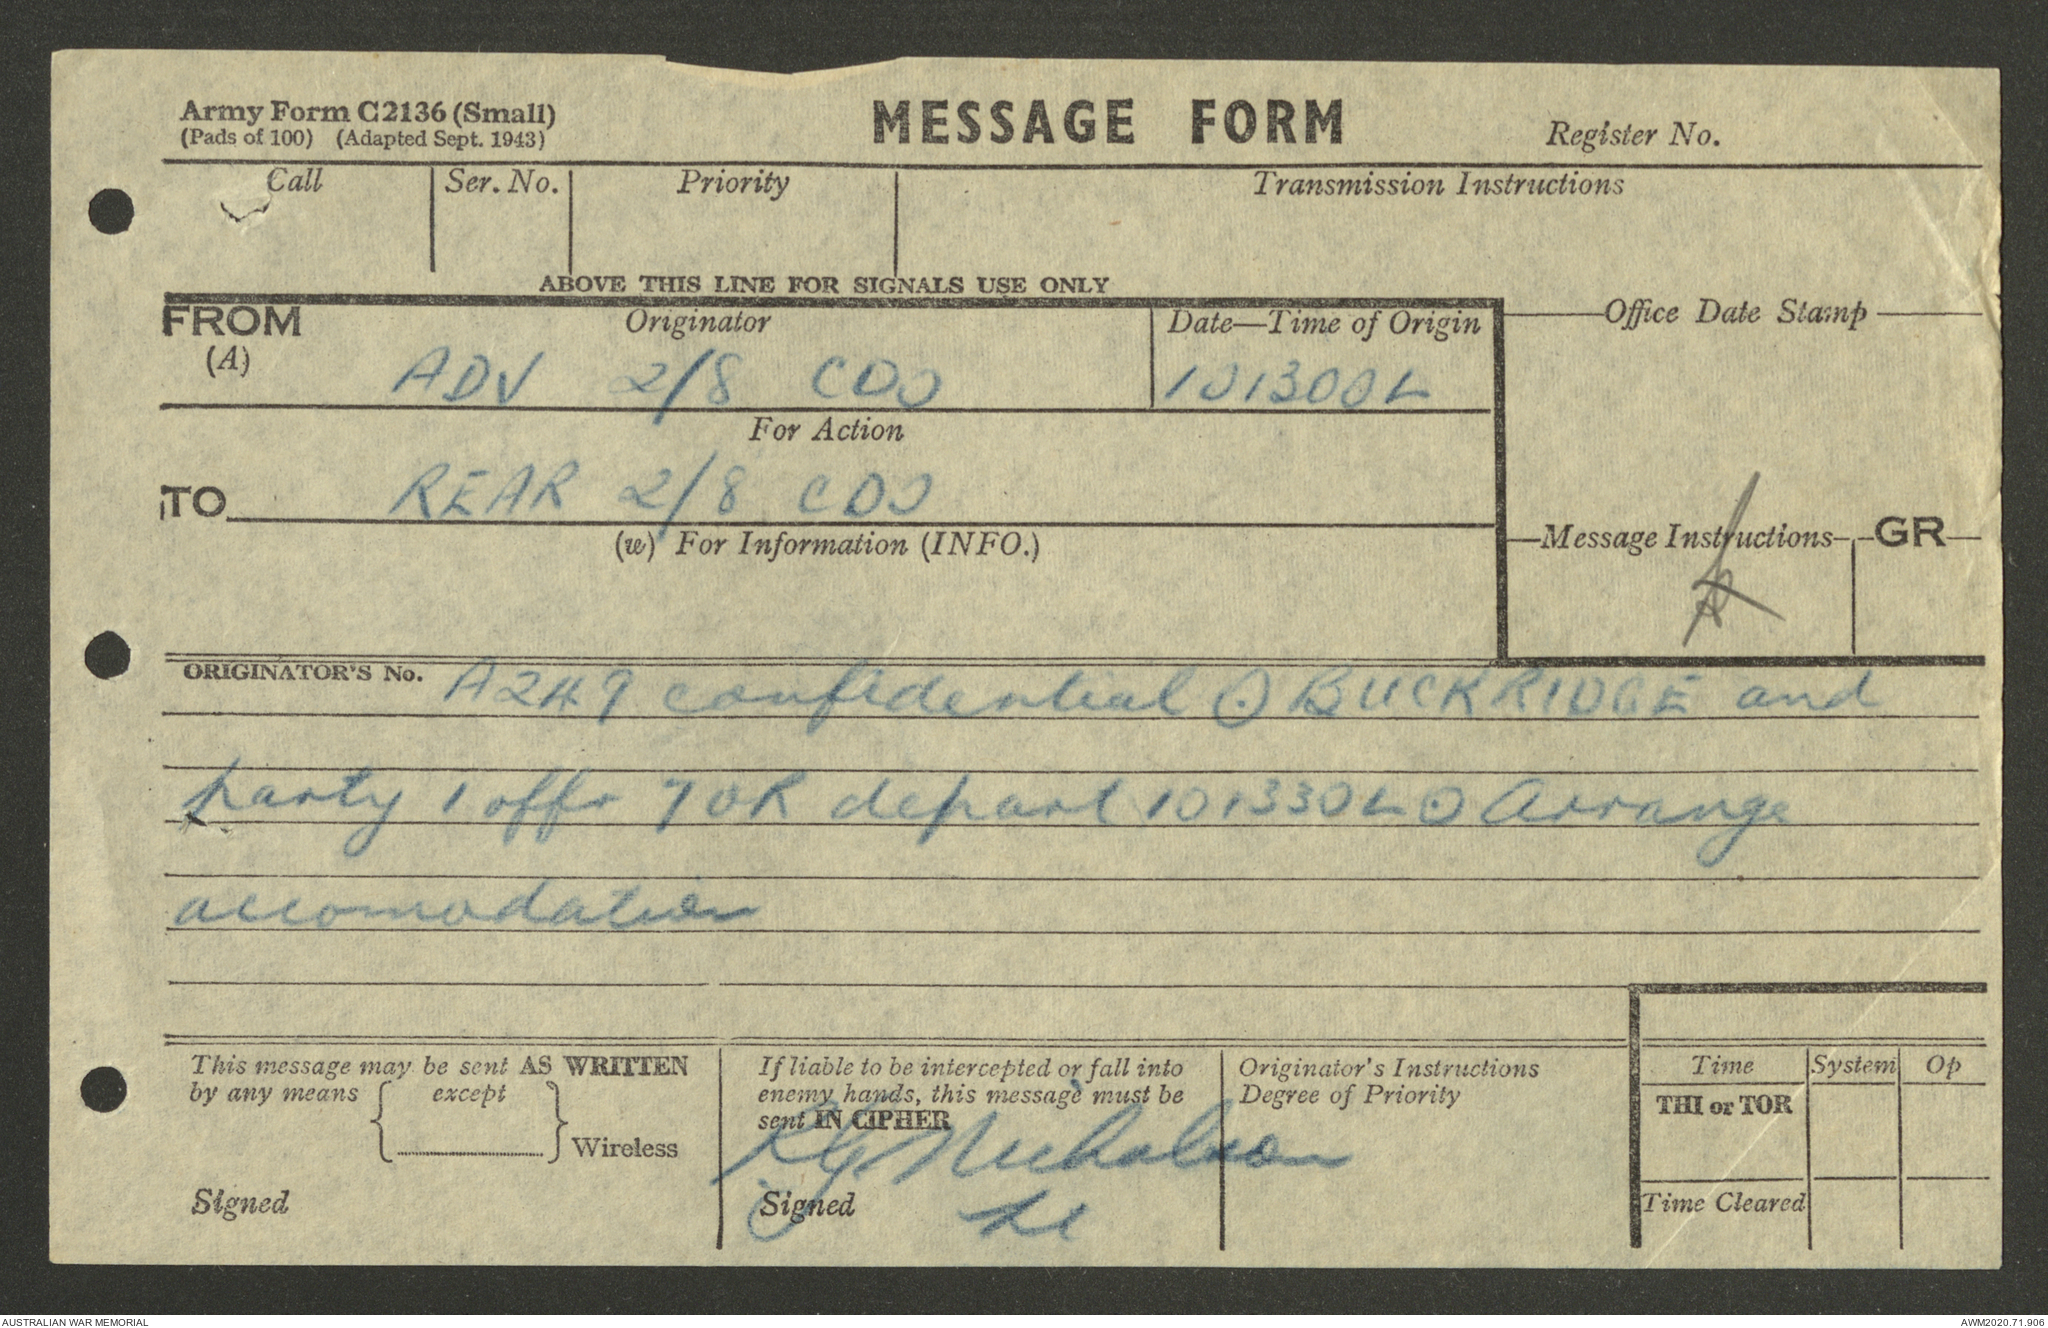 Army Form C2136 (Small)
(Pads of 100) (Adapted Sept. 1943)
MESSAGE FORM
Register No.
Call
Ser. No.
Priority
Transmission Instructions
ABOVE THIS LINE FOR SIGNALS USE ONLY
FROM
(A)
Originator
ADV 2/8 CDO
Date—Time of Origin
101300L
Office Date Stamp
For Action
TO
REAR 2/8 CDO
(w) For Information (INFO.)
Message Instructions
GR
ORIGINATOR'S No. A249 confidential ⊙ BUCKRIDGE and
party 1 offr 7 OR depart 101330L ⊙ Arrange
accomodation
This message may be sent AS WRITTEN
by any means { except
} Wireless
Signed
If liable to be intercepted or fall into
enemy hands, this message must be
sent IN CIPHER
Nicholson
Signed Lt
Originator's Instructions
Degree of Priority
Time
System
Op
THI or TOR
Time Cleared
AUSTRALIAN WAR MEMORIAL
AWM2020.71.906